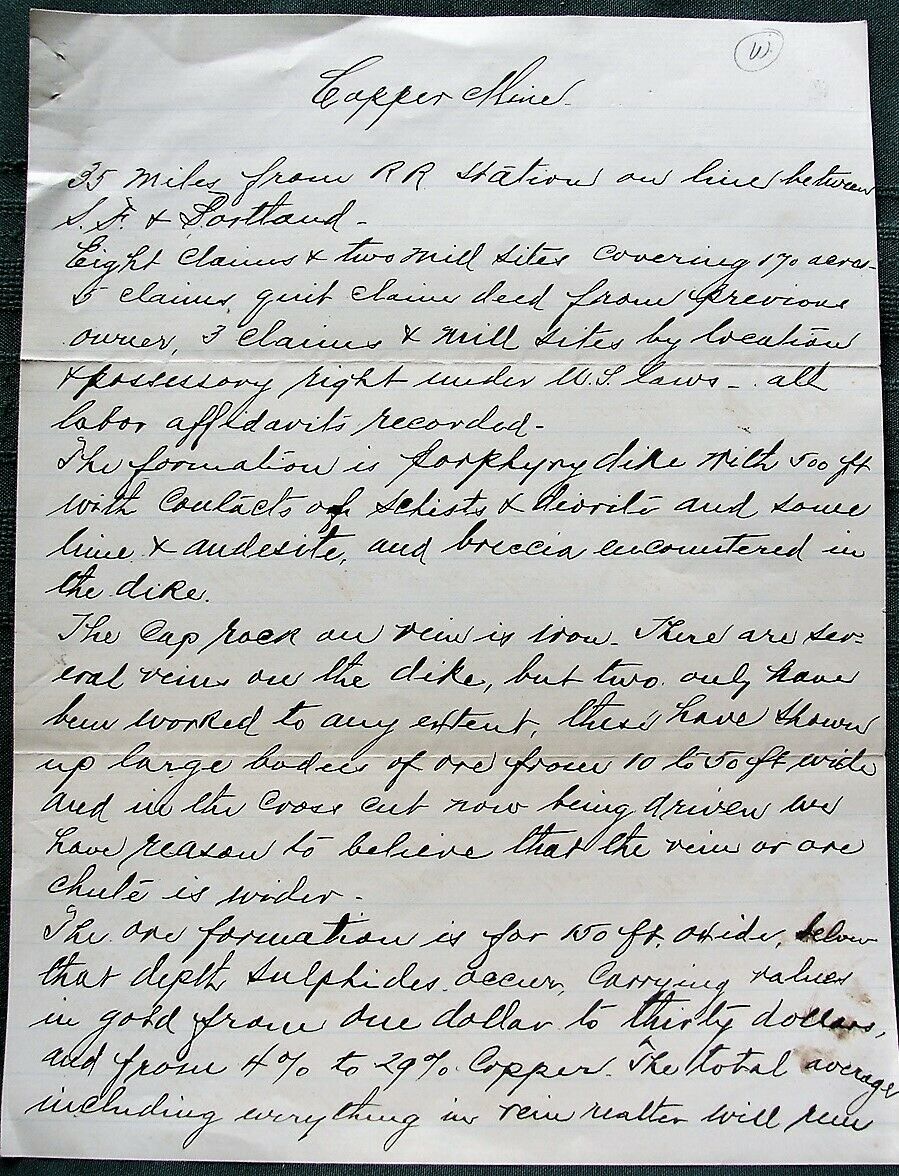 W.
Copper Mine.
35 miles from RR station on line between
S.F. & Portland -
Eight claims & two mill sites covering 170 acres -
5 claims quit claim deed from previous
owner, 3 claims & mill sites by location
& possessory right under U.S. laws - all
labor affidavits recorded -
The formation is porphyry dike with 500 ft
with contacts of schists & diorite and some
lime & andesite, and breccia encountered in
the dike.
The cap rock on vein is iron - There are sev-
eral veins on the dike, but two only have
been worked to any extent, these have shown
up large bodies of ore from 10 to 50 ft wide
and in the cross cut now being driven we
have reason to believe that the vein or ore
chute is wider -
The ore formation is for 150 ft. oxide, below
that depth sulphides occur, carrying values
in gold from one dollar to thirty dollars,
and from 4% to 29% copper. The total average
including everything in vein matter will run